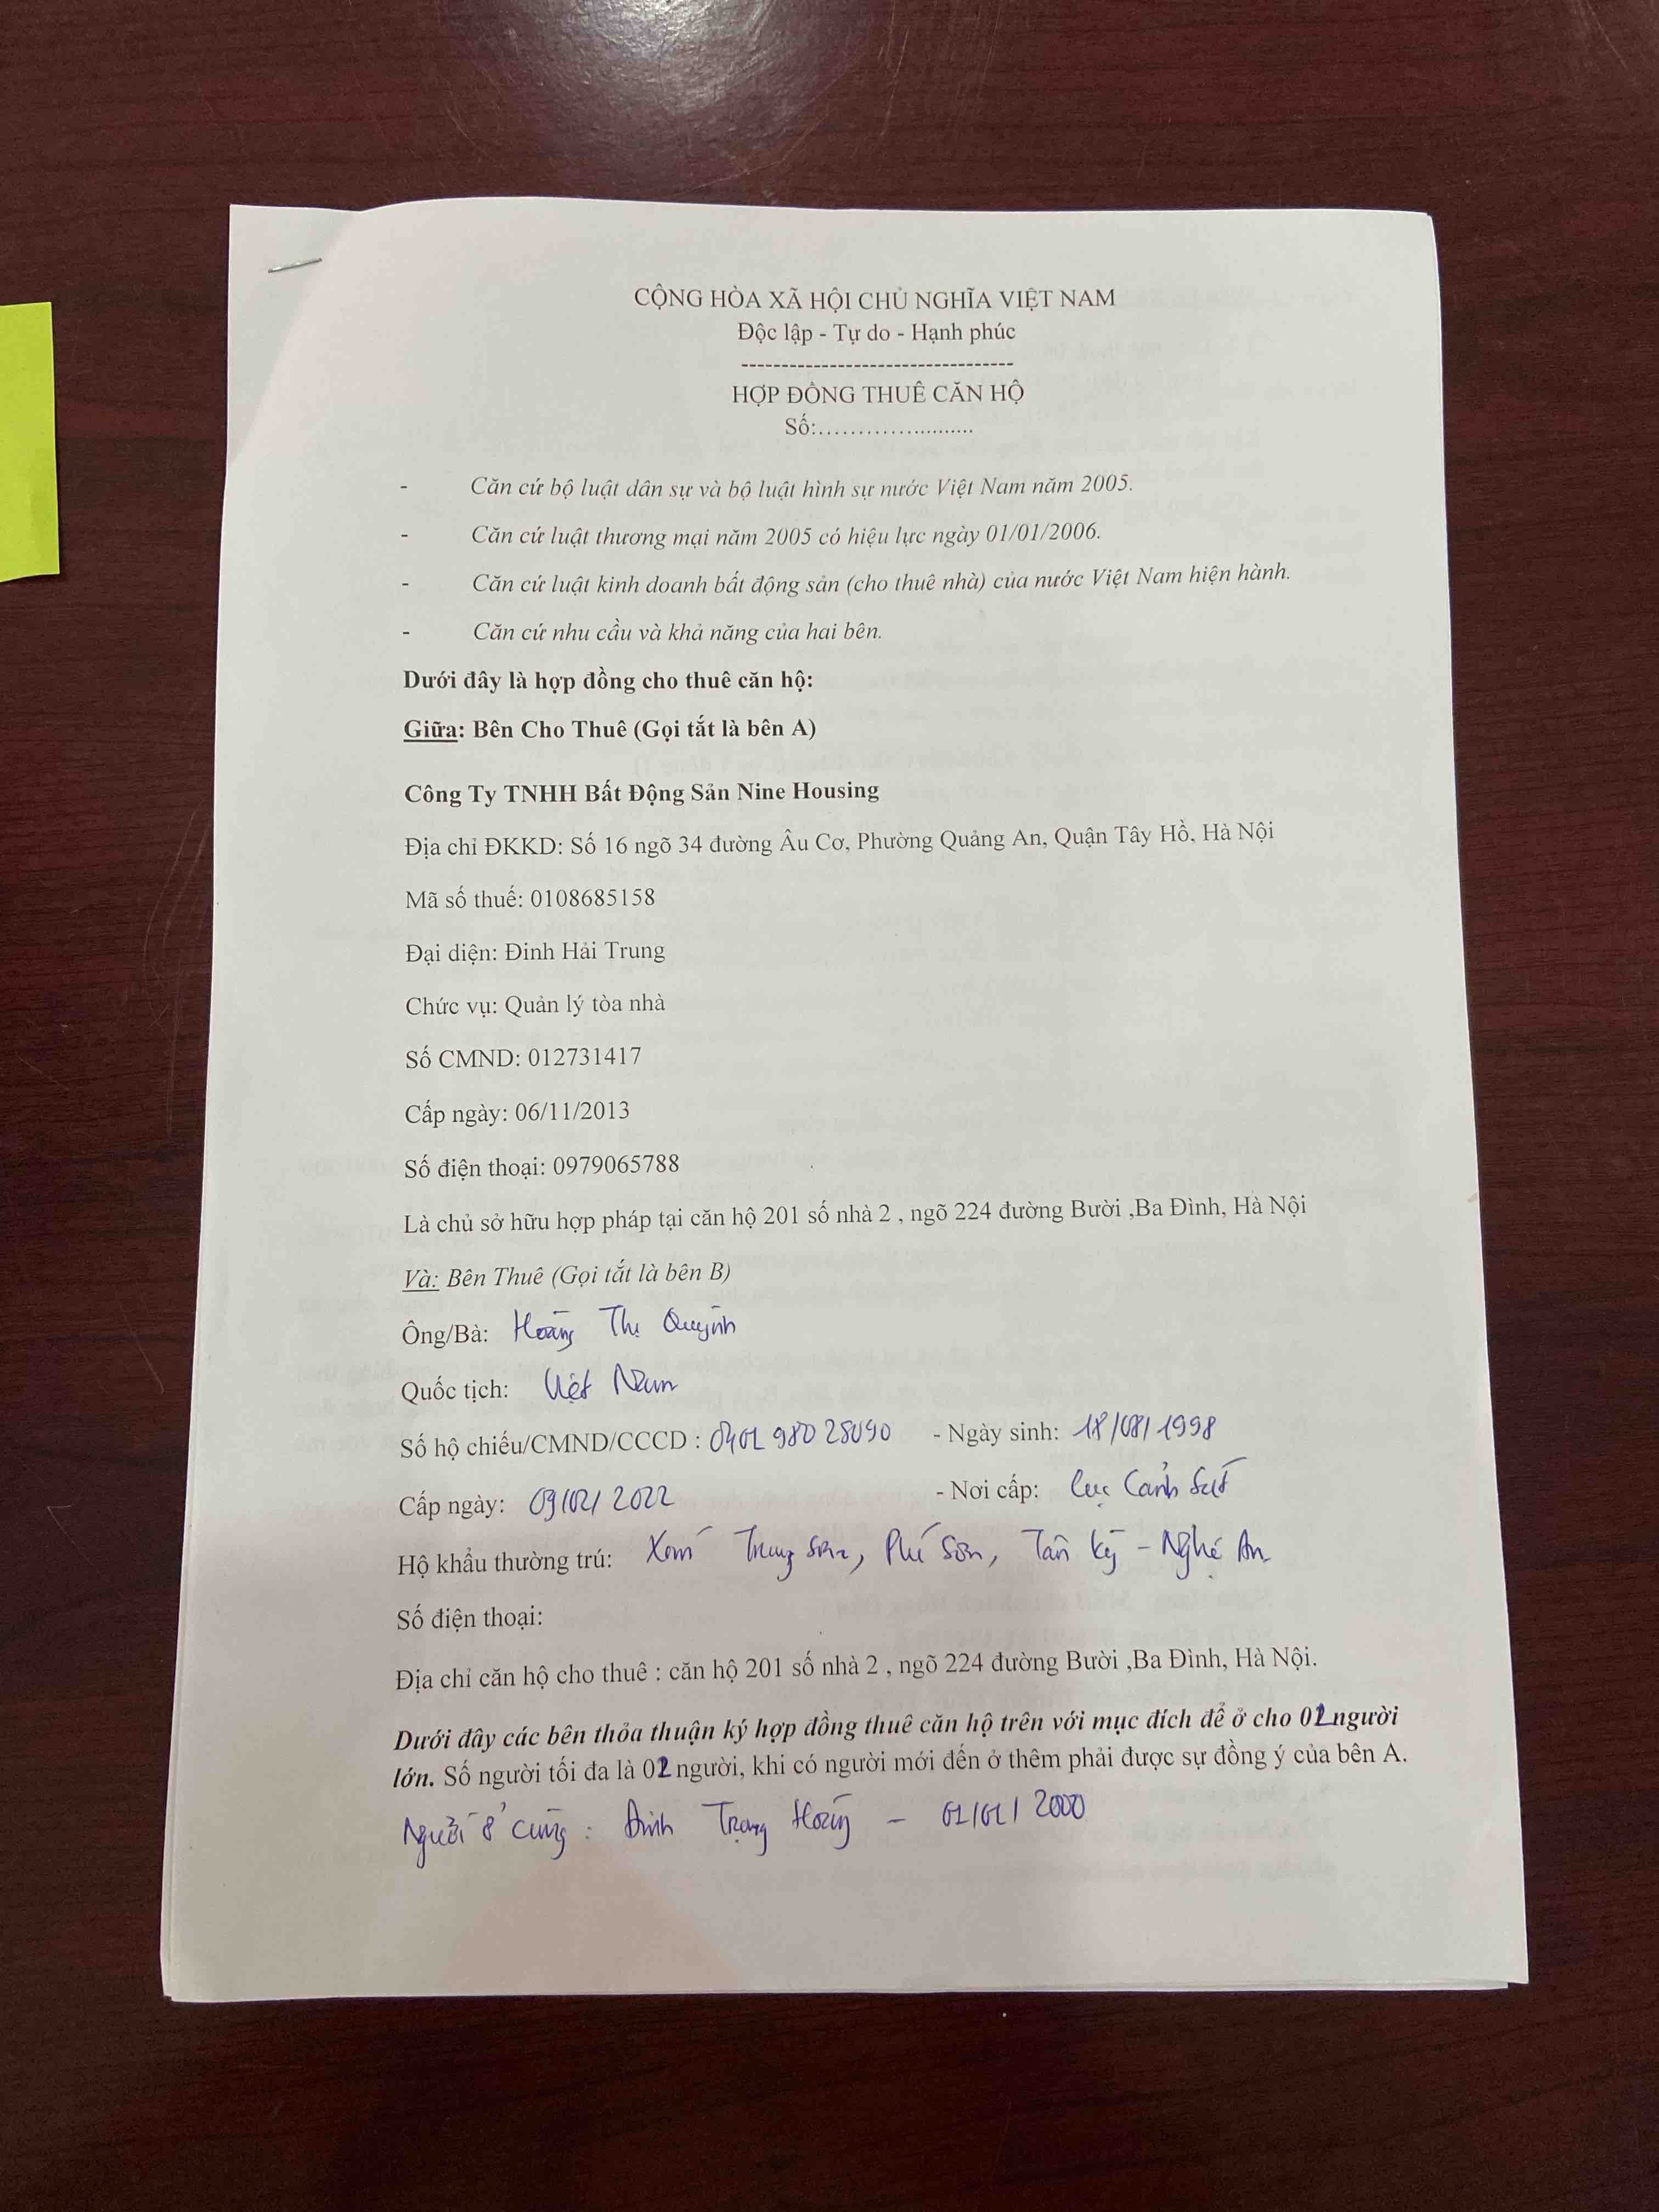 CỘNG HÒA XÃ HỘI CHỦ NGHĨA VIỆT NAM
Độc lập - Tự do - Hạnh phúc
----------------------------------
HỢP ĐỒNG THUÊ CĂN HỘ
Số:......................
- Căn cứ bộ luật dân sự và bộ luật hình sự nước Việt Nam năm 2005.
- Căn cứ luật thương mại năm 2005 có hiệu lực ngày 01/01/2006.
- Căn cứ luật kinh doanh bất động sản (cho thuê nhà) của nước Việt Nam hiện hành.
- Căn cứ nhu cầu và khả năng của hai bên.
Dưới đây là hợp đồng cho thuê căn hộ:
Giữa: Bên Cho Thuê (Gọi tắt là bên A)
Công Ty TNHH Bất Động Sản Nine Housing
Địa chỉ ĐKKD: Số 16 ngõ 34 đường Âu Cơ, Phường Quảng An, Quận Tây Hồ, Hà Nội
Mã số thuế: 0108685158
Đại diện: Đinh Hải Trung
Chức vụ: Quản lý tòa nhà
Số CMND: 012731417
Cấp ngày: 06/11/2013
Số điện thoại: 0979065788
Là chủ sở hữu hợp pháp tại căn hộ 201 số nhà 2 , ngõ 224 đường Bưởi ,Ba Đình, Hà Nội
Và: Bên Thuê (Gọi tắt là bên B)
Ông/Bà: Hoàng Thị Quỳnh
Quốc tịch: Việt Nam
Số hộ chiếu/CMND/CCCD : - Ngày sinh: 18/08/1998
Cấp ngày: 09/02/2022 - Nơi cấp: Cục Cảnh Sát
Hộ khẩu thường trú: Xóm Trung Sơn, Phú Sơn, Tân Kỳ - Nghệ An
Số điện thoại:
Địa chỉ căn hộ cho thuê : căn hộ 201 số nhà 2 , ngõ 224 đường Bưởi ,Ba Đình, Hà Nội.
Dưới đây các bên thỏa thuận ký hợp đồng thuê căn hộ trên với mục đích để ở cho 02 người
lớn. Số người tối đa là 02 người, khi có người mới đến ở thêm phải được sự đồng ý của bên A.
Người ở cùng : Đinh Trọng Hoàng - 2000